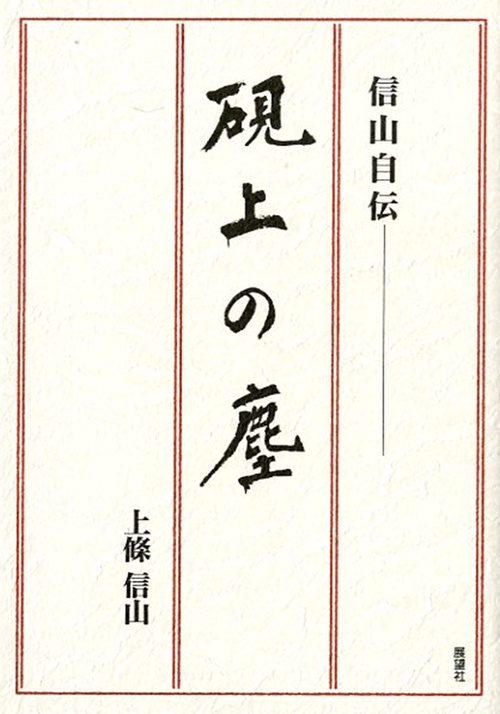 信山自伝
硯上の塵
上條 信山
展望社